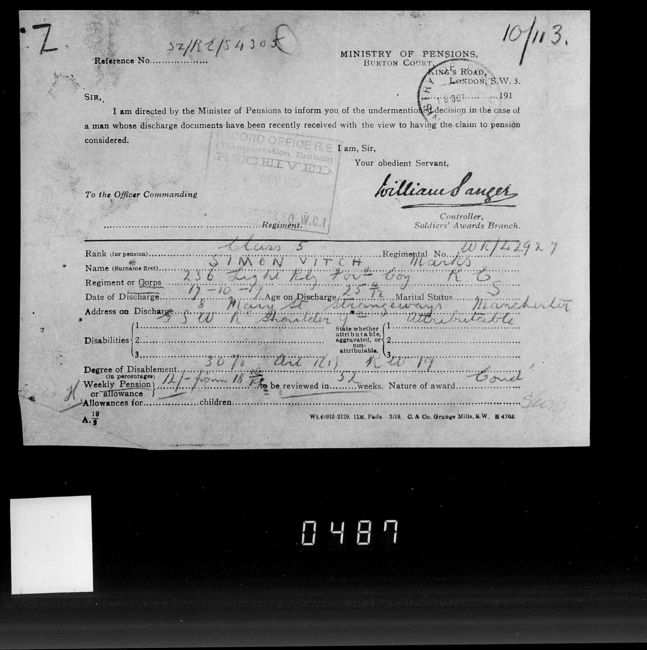 Z
10/113.
Reference No. SZ/RE/54305
MINISTRY OF PENSIONS,
BURTON COURT,
KING'S ROAD,
LONDON, S.W. 3.
191
SIR,
I am directed by the Minister of Pensions to inform you of the undermentioned decision in the case of
a man whose discharge documents have been recently received with the view to having the claim to pension
considered.
RECORD OFFICE R.E.
RECEIVED
W.C.1
I am, Sir,
Your obedient Servant,
William Sanger
To the Officer Commanding
Controller,
Soldiers' Awards Branch.
Regiment.
Rank (for pension) Class 5 Regimental No. WR/42927
Name (Surname first) SIMON VITCH Marks
Regiment or Corps 236 Light Rly Forwd Coy R E
Date of Discharge 17-10-19 Age on Discharge 25 Marital Status S
Address on Discharge 8 Mary St Strangeways Manchester
G S W R Shoulder Attributable
Disabilities
1
2
3
State whether
attributable,
aggravated, or
non-
attributable.
1
2
3
Degree of Disablement 30% Art 1(1) RW 19
(in percentages)
Weekly Pension 12/- from 18 to be reviewed in 52 weeks. Nature of award Cond
or allowance
Allowances for children
A. 19/3
Wt.4/910-2129. 11M. Pads. 2/19. C. & Co. Grange Mills, S.W. B 4703.
0487